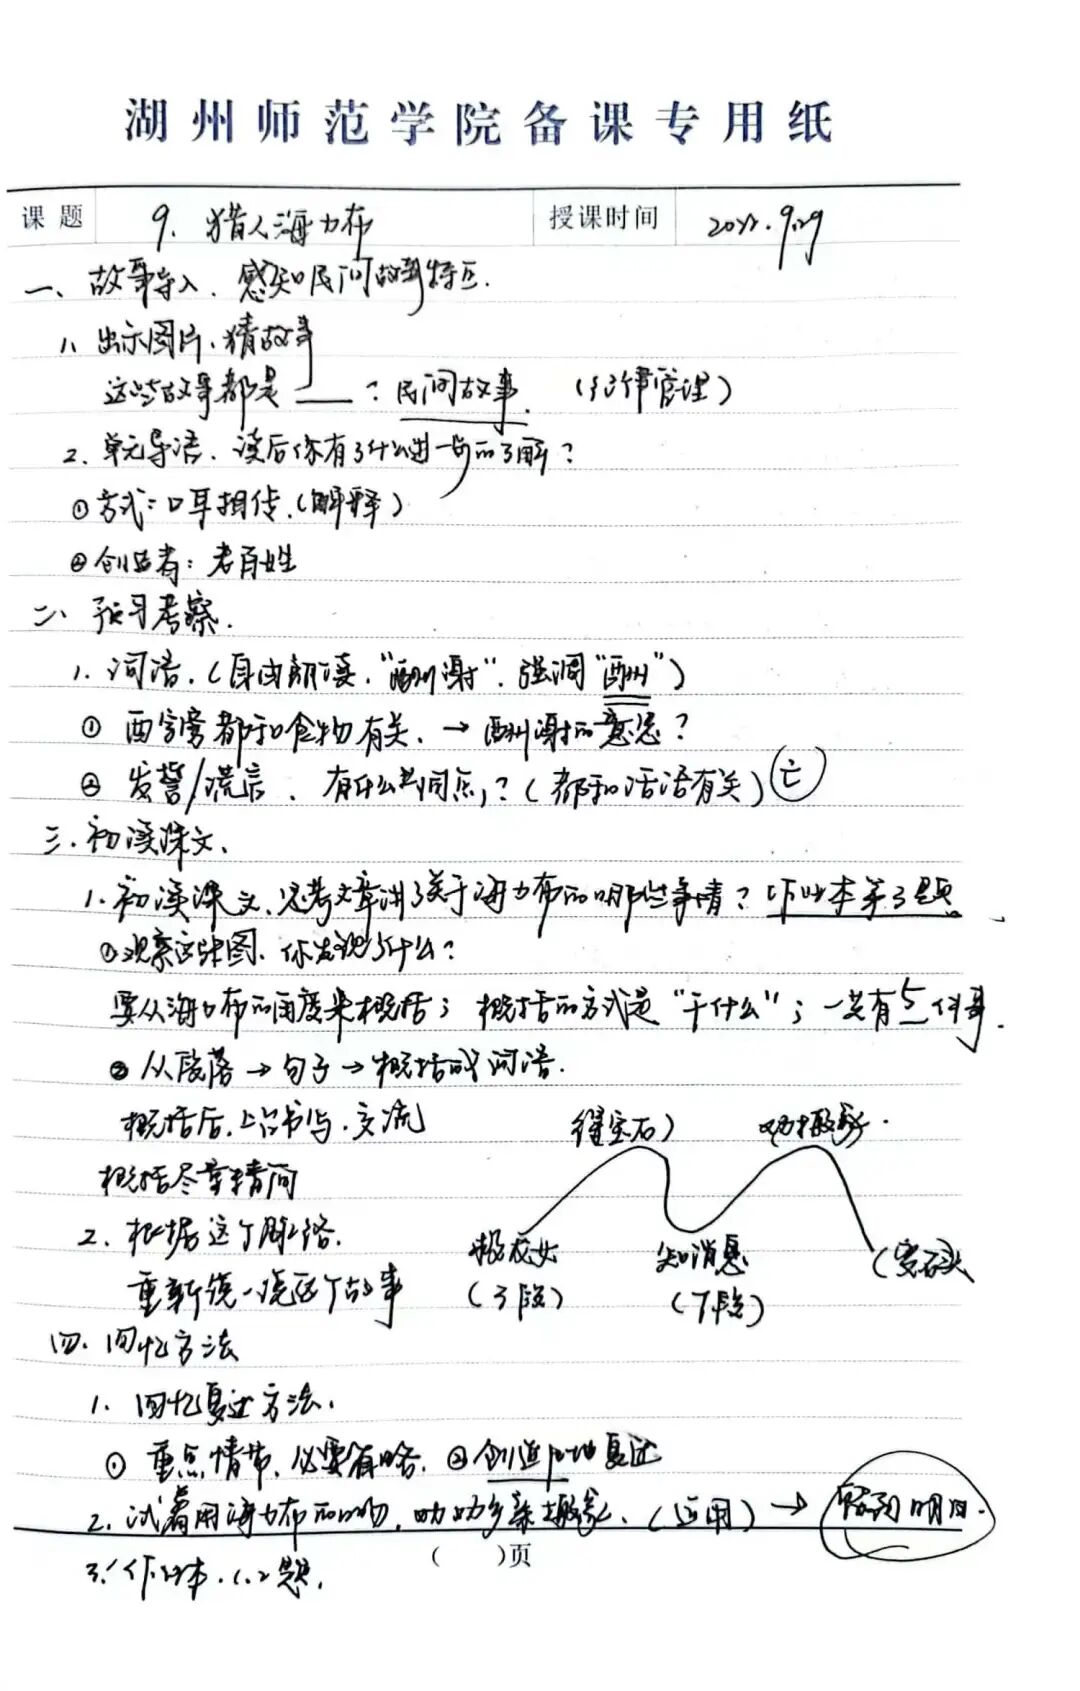 湖州师范学院备课专用纸
课题 9. 猎人海力布 授课时间 2022.9.29
一、故事导入、感知民间故事特点.
1、出示图片、猜故事
这些故事都是——? 民间故事. (纪律管理)
2、单元导语、读后你有了什么进一步的了解?
①方式:口耳相传.(解释)
②创造者:老百姓
二、预习考察.
1、词语.(自由朗读,"酬谢".强调"酬")
① 酉字旁都和食物有关.→酬谢的意思?
② 发誓/谎言、有什么共同点?(都和话语有关) 亡
三.初读课文、
1.初读课文、思考文章讲了关于海力布的哪些事情? 作业本第3题。
①观察这张图、你发现了什么?
要从海力布的角度来概括;概括的方式是"干什么";一共有5件事.
②从段落→句子→概括成词语.
概括后.上台书写.交流 得宝石) 劝搬家.
概括尽量精简
2、根据这个脉络. 救龙女 知消息 (变石头
重新说一说这个故事 (3段) (7段)
四、回忆方法
1、回忆复述方法.
① 重点情节、必要省略. ②创造性地复述
2、试着用海力布的口吻,劝劝乡亲搬家、(运用)→
( )页
3、作业本.1.2题.